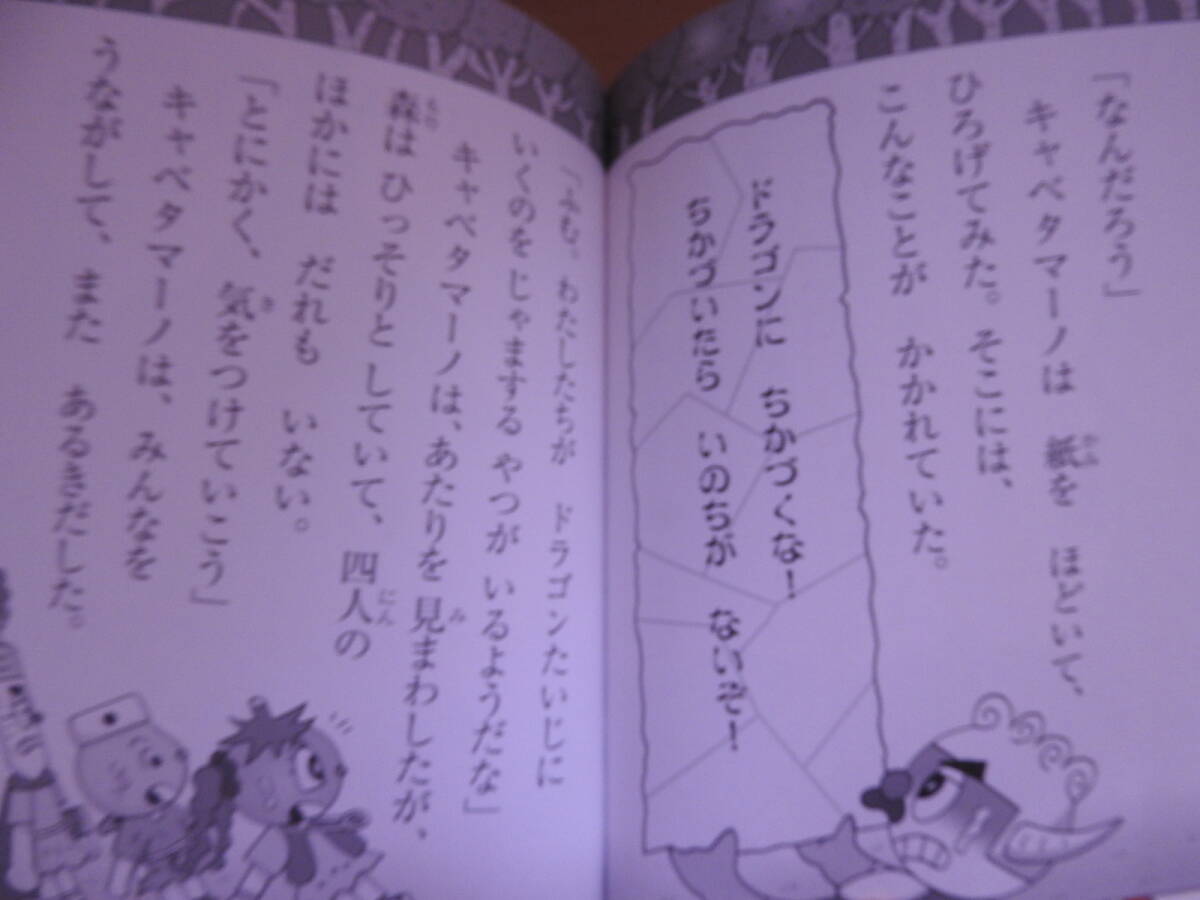 「なんだろう」
キャベタマーノは 紙を ほどいて、
ひろげてみた。そこには、
こんなことが かかれていた。
ドラゴンに ちかづくな!
ちかづいたら いのちが ないぞ!
「ふむ。わたしたちが ドラゴンたいじに
いくのを じゃまする やつが いるようだな」
キャベタマーノは、あたりを 見まわしたが、
森は ひっそりと していて、四人の
ほかには だれも いない。
「とにかく、気をつけていこう」
キャベタマーノは、みんなを
うながして、また あるきだした。